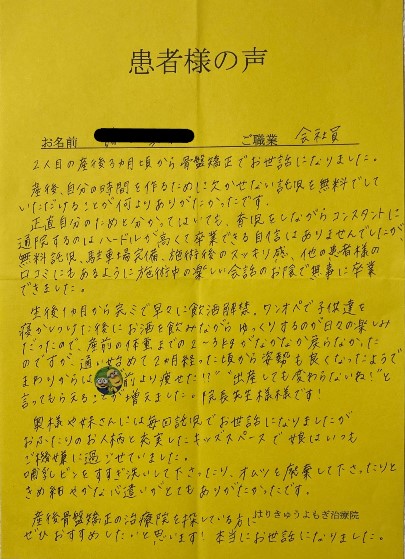 患者様の声
お名前 ご職業 会社員
2人目の産後3ヵ月頃から骨盤矯正でお世話になりました。
産後、自分の時間を作るために欠かせない託児を無料でして
いただけることが何よりありがたかったです。
正直自分のためと分かってはいても、育児をしながらコンスタントに
通院するのはハードルが高くて卒業できる自信はありませんでしたが、
無料託児、駐車場完備、施術後のスッキリ感、他の患者様の
口コミにもあるように施術中の楽しい会話のお陰で無事に卒業
できました。
生後1ヵ月から完ミで早々に飲酒解禁。ワンオペで子供達を
寝かしつけた後にお酒を飲みながらゆっくりするのが日々の楽しみ
だったので、産前の体重までの2～3キロがなかなか戻らなかった
のですが、通い始めて2ヵ月経った頃から姿勢も良くなったようで
まわりからは 前より痩せた!?""出産しても変わらないね!"と
言ってもらえること が増えました。院長先生様様です!
奥様や妹さんには毎回託児でお世話になりましたが
おふたりのお人柄と充実したキッズスペースで娘はいつも
ご機嫌に過ごせていました。
哺乳ビンをすすぎ洗いして下さったり、オムツを廃棄して下さったりと
きめ細やかな心遣いがとてもありがたかったです。
産後骨盤矯正の治療院を探している方に はりきゅうよもぎ治療院
ぜひおすすめしたいと思います! 本当にお世話になりました。